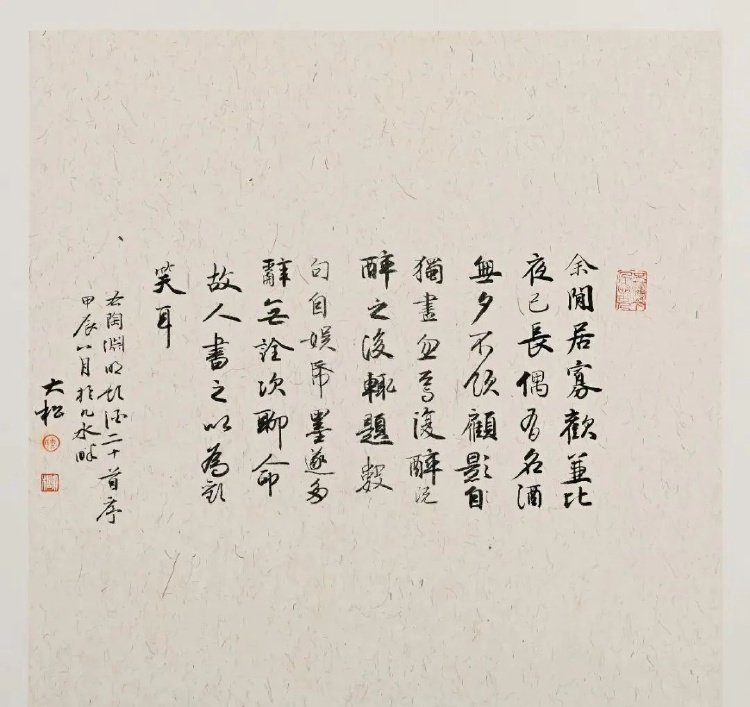 余閒居寡歡兼比
夜已長偶有名酒
無夕不飲顧影自
獨盡忽焉復醉既
醉之後輒題數
句自娛帋墨遂多
辭無詮次聊命
故人書之以為歡
笑耳
右陶淵明飲酒二十首序
甲辰八月於九水畔
大松